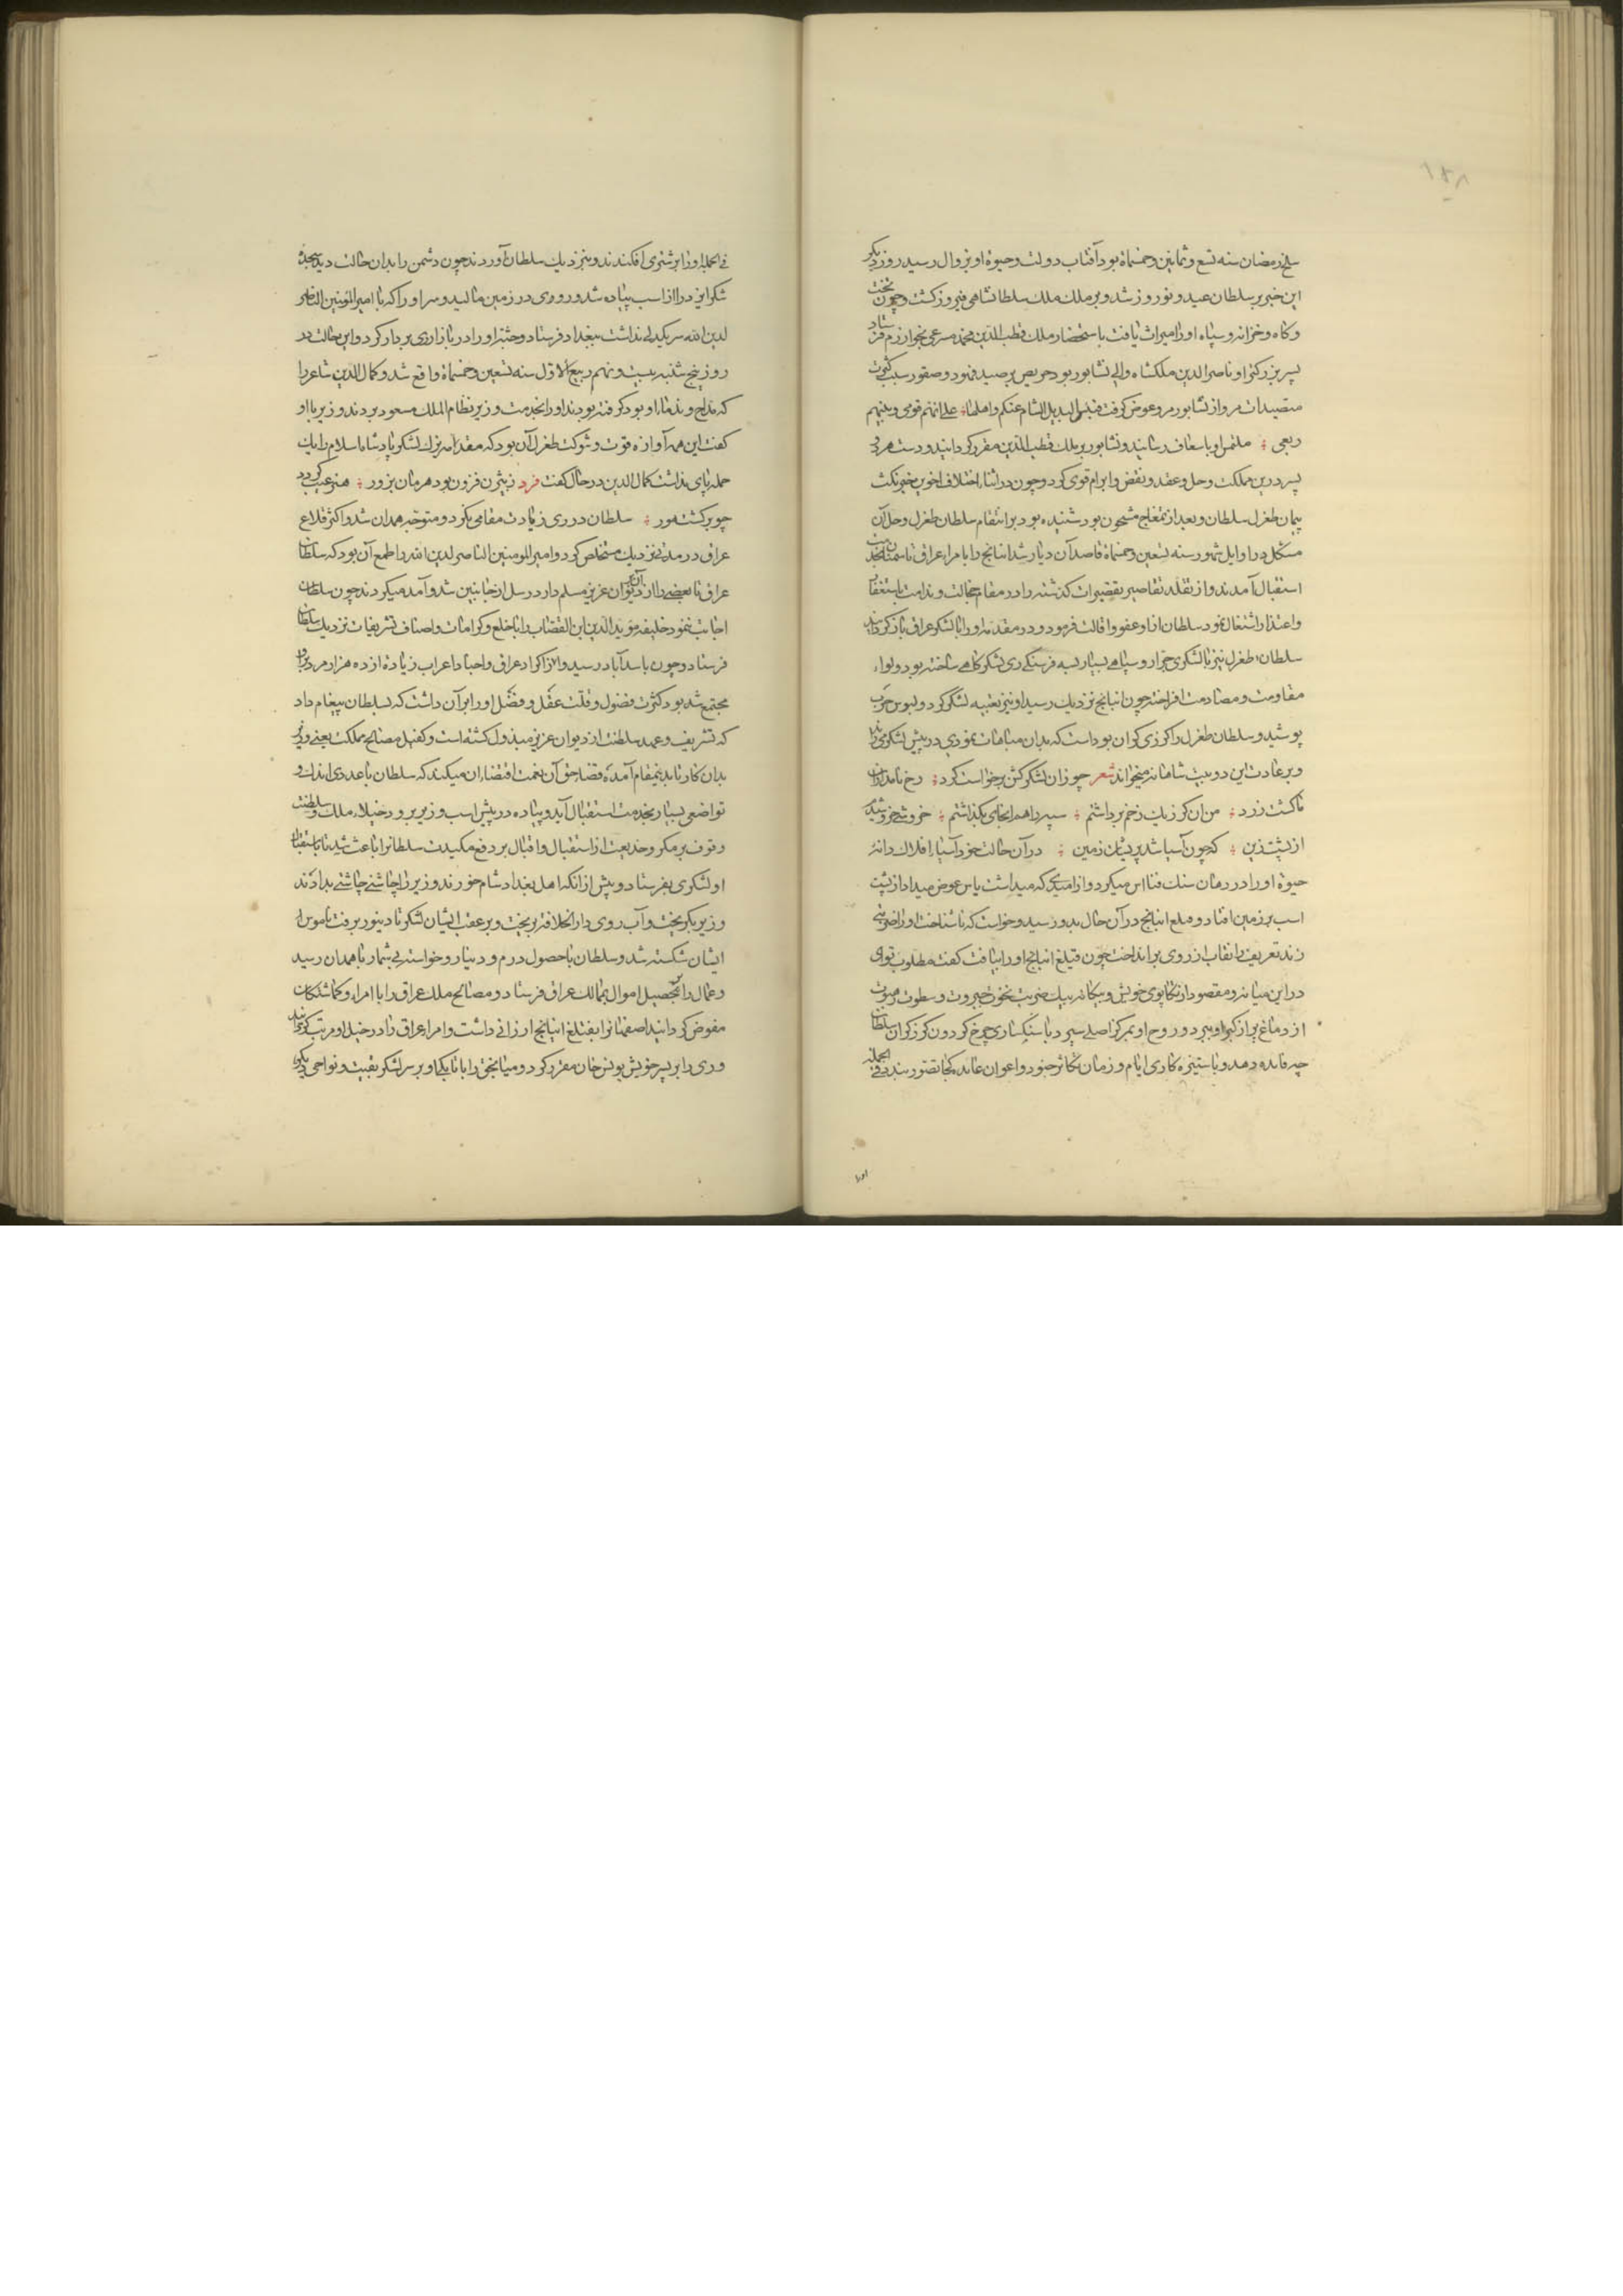 ۱۴۸
سلخ رمضان سنه تسع و ثمانین و خمسمأة بود آفتاب دولت و حیوة او بزوال رسید روز دیگر
این خبر بر سلطان عید و نوروز شد و بر ملک ملک سلطانشاهی فیروز کشت و چون تخت
و کاه و خزانه و سپاه او را میراث یافت باستحضار ملک قطب الدین محمد مسرعی بخوارزم فرستاد
پسر بزرکتر او ناصر الدین ملکشاه والی نشابور بود حریص بر صید فهود و صقور سبب کثرت
متصیدات مرو از نشابور مرو عوض کرفت فبئس البدیل الشام عنکم و اهلها علی انهم قومی و بینهم
ربعی ملتمس او باسعاف رسانید و نشابور بر ملک قطب الدین مقرر کردانید و دست هر دو
پسر درین مملکت و حل و عقد و نقض و ابرام قوی کرد و چون در اثناء اختلاف اخوین خبر نکث
پیمان طغرل سلطان و بعد از تمغاج مشحون بود شنیده بود بر انتقام سلطان طغرل و حل آن
مشکل در اوایل شهور سنه تسعین و خمسمأة قاصد آن دیار شد اینانج را با امراء عراق تا سمنان بخدمت
استقبال آمدند و از تقلد تقاصیر تقصیرات کذشته را در مقام خجالت و ندامت باستغفار
و اعتذار اشتغال نمود سلطان از او عفو و اقالت فرمود و در مقدمه او را با لشکر عراق باز کردانید
سلطان طغرل نیز با لشکری جرار و سپاهی بسیار بسه فرسنکی ری لشکرکاهی ساخته بود و لواء
مقاومت و مصادمت افراخته چون اینانج نزدیک رسید او نیز تعبیه لشکر کرد و لبوس حرب
پوشید و سلطان طغرل را کرزی کران بود است که بدان مباهات نمودی در پیش لشکر می راند
و بر عادت این دو بیت شاهنامه میخواند شعر چو زان لشکر کشن برخواست کرد رخ نامداران
ما کشت زرد من ان کرز یک زخم برداشتم سپه را هم انجای بکذاشتم خروشی خروشیدم
از پشت زین که چون آسیا شد بریشان زمین در آن حالت خود آسیاء افلاک دانه
حیوة او را در دهان سنک فنا اس میکرد و از امیدی که میداشت یاس عوض میداد از پشت
اسب بر زمین افتاد و قتلغ اینانج در آن حال بدو رسید و خواست که ناشناخت او را ضربتی
زند تعریف را نقاب از روی برانداخت چون قتلغ اینانج او را بیافت کفت مطلوب توای
در این میانه و مقصود از تکاپوی خویش و بیکانه بیک ضربت نخوت جبروت و سطوت مروت
از دماغ پر از کبر او ببرد و روح او بمرکز اصلی سپرد با سبکساری چرخ کردون کرز کران سلطان
چه فایده دهد و با ستیزه کاری ایام و زمان تکاثر جنود و اعوان عائده کجا تصور بندد فی الجمله
فی الجمله او را بر شتری افکندند و بنزدیک سلطان آوردند چون دشمن را بدان حالت دید سجده
شکر ایزد را از اسب پیاده شد و روی در زمین مالید و سر او را که با امیر المؤمنین الناصر
لدین الله سر یکدلی نداشت ببغداد فرستاد و جثه او را در بازار ری بر دار کرد و این حالت در
روز پنج شنبه بیست و نهم ربیع الاول سنه تسعین و خمسمأة واقع شد و کمال الدین شاعر را
که مداح و ندماء او بود کرفته بودند او را بخدمت وزیر نظام الملک مسعود بردند وزیر با او
کفت این همه آوازه قوت و شوکت طغرل آن بود که مقدمه یزک لشکر پادشاه اسلام را یک
حمله پای نداشت کمال الدین در حال کفت فرد ز بیژن فزون بود هرمان بزور هنر عیب کردد
چو برکشت هور سلطان در ری زیادت مقامی نکرد و متوجه همدان شد و اکثر قلاع
عراق در مدتی نزدیک مستخلص کرد و امیر المومنین الناصر لدین الله را طمع آن بود که سلطان
عراق یا بعضی را از آن دیوان عزیز مسلم دارد رسل از جانبین شد و آمد میکردند چون سلطان
اجابت ننمود خلیفه موید الدین ابن القصاب را با خلع و کرامات و اصناف تشریفات نزدیک سلطان
فرستاد و چون باسدآباد رسید و از اکراد عراق و اجناد اعراب زیاده از ده هزار مرد بر او
مجتمع شد بود کثرت فضول و قلت عقل و فضل او را بر آن داشت که بسلطان پیغام داد
که تشریف و عهد سلطنت از دیوان عزیز مبذول کشته است و کفیل مصالح مملکت یعنی وزیر
بدان کار تا بدینمقام آمده قضاء حق آن نعمت اقتضاء ان میکند که سلطان با عددی اندک و
تواضعی بسیار بخدمت استقبال آید و پیاده در پیش اسب وزیر برود خیلاء ملک و سلطنت
وقوف بر مکر و خدیعت از استقبال و اقبال بر دفع مکیدت سلطانرا باعث شد تا باستقبال
او لشکری بفرستاد و پیش از انکه اهل بغداد شام خورند وزیر را چاشنی چاشتی بدادند
وزیر بکریخت و آب روی دار الخلافة بریخت و بر عقب ایشان لشکر تا دینور برفت ناموس
ایشان شکسته شد و سلطان با حصول درم و دینار و خواسته بی شمار با همدان رسید
و عمال را بتحصیل اموال بممالک عراق فرستاد و مصالح ملک عراق را با امراء و کماشتکان
مفوض کردانید اصفهانرا بقتلغ اینانج ارزانی داشت و امراء عراق را در خیل او مرتب کردانید
و ری را بر پسر خویش یونس خان مقرر کرد و میانجق را باتابکی او بر سر لشکر تعیین و نواحی دیگر